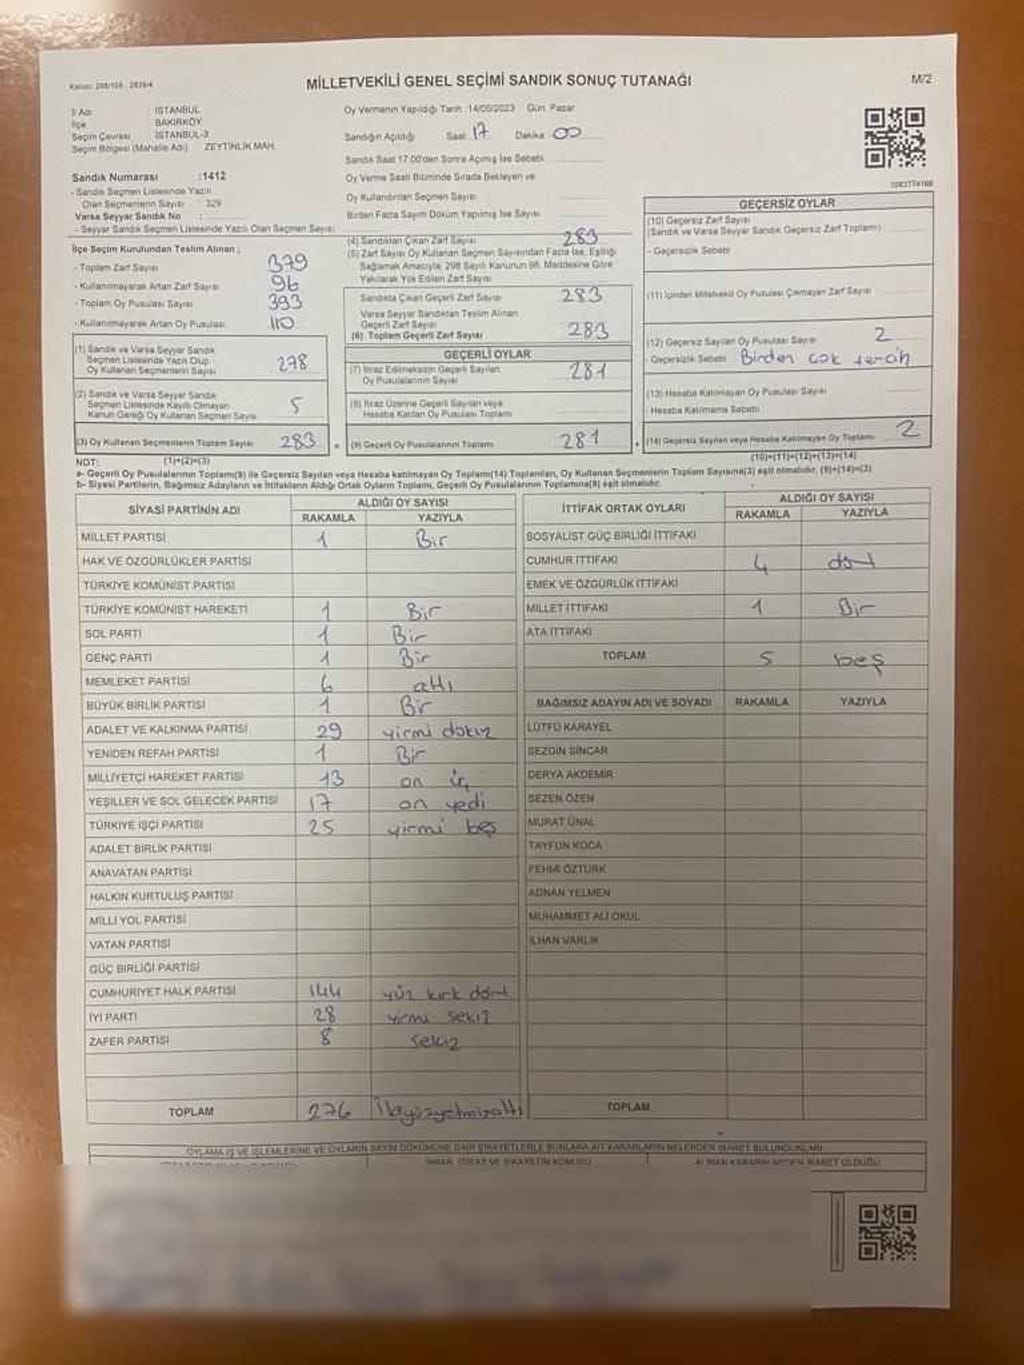 Kanun: 298/105 - 2839/4
MİLLETVEKİLİ GENEL SEÇİMİ SANDIK SONUÇ TUTANAĞI
M/2
İl Adı : İSTANBUL
İlçe : BAKIRKÖY
Seçim Çevresi : İSTANBUL-3
Seçim Bölgesi (Mahalle Adı) : ZEYTİNLİK MAH.
Oy Vermenin Yapıldığı Tarih :14/05/2023 Gün: Pazar
Sandığın Açıldığı Saat 17 Dakika 00
Sandık Saat 17.00'den Sonra Açılmış İse Sebebi
Oy Verme Saati Bitiminde Sırada Bekleyen ve
Oy Kullandırılan Seçmen Sayısı
Birden Fazla Sayım Döküm Yapılmış İse Sayısı
Sandık Numarası :1412
- Sandık Seçmen Listesinde Yazılı
Olan Seçmenlerin Sayısı : 329
Varsa Seyyar Sandık No :
- Seyyar Sandık Seçmen Listesinde Yazılı Olan Seçmen Sayısı
İlçe Seçim Kurulundan Teslim Alınan ;
- Toplam Zarf Sayısı 379
- Kullanılmayarak Artan Zarf Sayısı 96
- Toplam Oy Pusulası Sayısı 393
- Kullanılmayarak Artan Oy Pusulası 110
(1) Sandık ve Varsa Seyyar Sandık
Seçmen Listesinde Yazılı Olup
Oy Kullanan Seçmenlerin Sayısı 278
(2) Sandık ve Varsa Seyyar Sandık
Seçmen Listesinde Kayıtlı Olmayan
Kanun Gereği Oy Kullanan Seçmen Sayısı 5
(3) Oy Kullanan Seçmenlerin Toplam Sayısı 283
(1)+(2)=(3)
(4) Sandıktan Çıkan Zarf Sayısı 283
(5) Zarf Sayısı Oy Kullanan Seçmen Sayısından Fazla İse, Eşitliği
Sağlamak Amacıyla, 298 Sayılı Kanunun 98. Maddesine Göre
Yakılarak Yok Edilen Zarf Sayısı
Sandıkta Çıkan Geçerli Zarf Sayısı 283
Varsa Seyyar Sandıktan Teslim Alınan
Geçerli Zarf Sayısı
(6) Toplam Geçerli Zarf Sayısı 283
GEÇERLİ OYLAR
(7) İtiraz Edilmeksizin Geçerli Sayılan
Oy Pusulalarının Sayısı 281
(8) İtiraz Üzerine Geçerli Sayılan veya
Hesaba Katılan Oy Pusulası Toplamı
(9) Geçerli Oy Pusulalarının Toplamı 281
GEÇERSİZ OYLAR
(10) Geçersiz Zarf Sayısı
(Sandık ve Varsa Seyyar Sandık Geçersiz Zarf Toplamı)
- Geçersizlik Sebebi
(11) İçinden Milletvekili Oy Pusulası Çıkmayan Zarf Sayısı
(12) Geçersiz Sayılan Oy Pusulası Sayısı 2
- Geçersizlik Sebebi Birden çok tercih
(13) Hesaba Katılmayan Oy Pusulası Sayısı
- Hesaba Katılmama Sebebi
(14) Geçersiz Sayılan veya Hesaba Katılmayan Oy Toplamı 2
(10)+(11)+(12)+(13)=(14)
NOT:
a- Geçerli Oy Pusulalarının Toplamı(9) ile Geçersiz Sayılan veya Hesaba katılmayan Oy Toplamı(14) Toplamları, Oy Kullanan Seçmenlerin Toplam Sayısına(3) eşit olmalıdır. (9)+(14)=(3)
b- Siyasi Partilerin, Bağımsız Adayların ve İttifakların Aldığı Ortak Oyların Toplamı, Geçerli Oy Pusulalarının Toplamına(9) eşit olmalıdır.
SİYASİ PARTİNİN ADI ALDIĞI OY SAYISI
RAKAMLA YAZIYLA
MİLLET PARTİSİ 1 Bir
HAK VE ÖZGÜRLÜKLER PARTİSİ
TÜRKİYE KOMÜNİST PARTİSİ
TÜRKİYE KOMÜNİST HAREKETİ 1 Bir
SOL PARTİ 1 Bir
GENÇ PARTİ 1 Bir
MEMLEKET PARTİSİ 6 altı
BÜYÜK BİRLİK PARTİSİ 1 Bir
ADALET VE KALKINMA PARTİSİ 29 yirmi dokuz
YENİDEN REFAH PARTİSİ 1 Bir
MİLLİYETÇİ HAREKET PARTİSİ 13 on üç
YEŞİLLER VE SOL GELECEK PARTİSİ 17 on yedi
TÜRKİYE İŞÇİ PARTİSİ 25 yirmi beş
ADALET BİRLİK PARTİSİ
ANAVATAN PARTİSİ
HALKIN KURTULUŞ PARTİSİ
MİLLİ YOL PARTİSİ
VATAN PARTİSİ
GÜÇ BİRLİĞİ PARTİSİ
CUMHURİYET HALK PARTİSİ 144 yüz kırk dört
İYİ PARTİ 28 yirmi sekiz
ZAFER PARTİSİ 8 sekiz
TOPLAM 276 İkiyüzyetmişaltı
İTTİFAK ORTAK OYLARI ALDIĞI OY SAYISI
RAKAMLA YAZIYLA
SOSYALİST GÜÇ BİRLİĞİ İTTİFAKI
CUMHUR İTTİFAKI 4 dört
EMEK VE ÖZGÜRLÜK İTTİFAKI
MİLLET İTTİFAKI 1 Bir
ATA İTTİFAKI
TOPLAM 5 beş
BAĞIMSIZ ADAYIN ADI VE SOYADI RAKAMLA YAZIYLA
LÜTFÜ KARAYEL
SEZGİN SİNCAR
DERYA AKDEMİR
SEZEN ÖZEN
MURAT ÜNAL
TAYFUN KOCA
FEHMİ ÖZTÜRK
ADNAN YELMEN
MUHAMMET ALİ OKUL
İLHAN VARLIK
TOPLAM
OYLAMA İŞ VE İŞLEMLERİNE VE OYLARIN SAYIM DÖKÜMÜNE DAİR ŞİKAYETLERLE BUNLARA AİT KARARLARIN NELERDEN İBARET BULUNDUKLARI